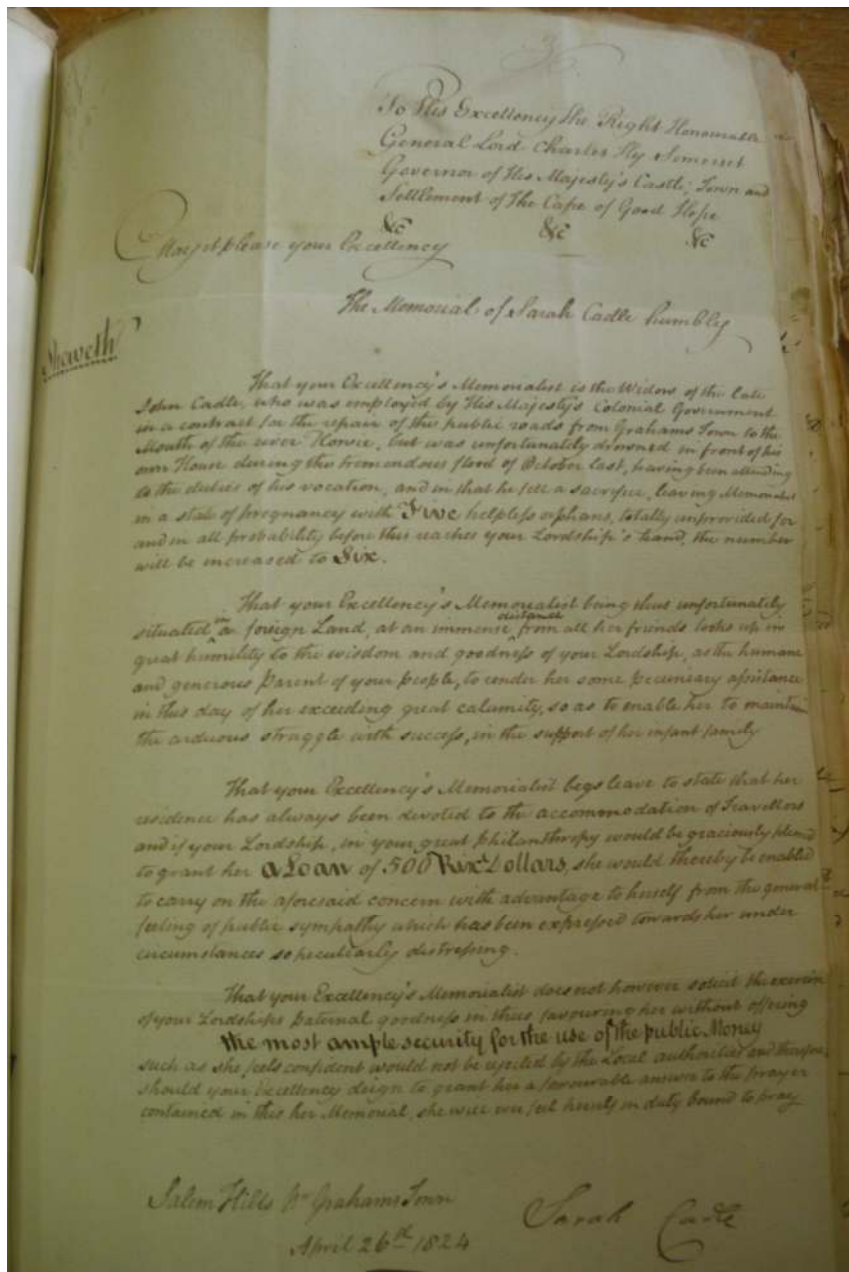 To His Excellency The Right Honourable
General Lord Charles Hy Somerset
Governor of His Majesty's Castle, Town and
Settlement of The Cape of Good Hope
&c &c &c
May it please your Excellency
The Memorial of Sarah Cadle humbly
Sheweth
That your Excellency's Memorialist is the Widow of the late
John Cadle, who was employed by His Majesty's Colonial Government
in a contract for the repair of the public roads from Grahams Town to the
Mouth of the river Kowie, but was unfortunately drowned in front of his
own House during the tremendous flood of October last, having been attending
to the duties of his vocation, and in that he fell a sacrifice, leaving Memorialist
in a state of pregnancy with Five helpless orphans, totally unprovided for
and in all probability before this reaches your Lordship's hand, the number
will be increased to Six.
That your Excellency's Memorialist being thus unfortunately
situated in a foreign Land, at an immense distance from all her friends looks up in
great humility to the wisdom and goodness of your Lordship, as the humane
and generous Parent of your People, to render her some pecuniary assistance
in this day of her exceeding great calamity, so as to enable her to maintain
the arduous struggle with success, in the support of her infant family
That your Excellency's Memorialist begs leave to state that her
residence has always been devoted to the accommodation of Travellors
and if your Lordship, in your great Philanthropy would be graciously pleased
to grant her a Loan of 500 Rix Dollars, she would thereby be enabled
to carry on the aforesaid concern with advantage to herself from the general
feeling of public sympathy which has been expressed towards her under
circumstances so peculiarly distressing.
That your Excellency's Memorialist does not however solicit the exercise
of your Lordships paternal goodness in thus favouring her without offering
the most ample security for the use of the public Money
such as she feels confident would not be rejected by the Local authorities and therefore
should your Excellency deign to grant her a favourable answer to the prayer
contained in this her Memorial, she will ever feel herself in duty bound to pray
Salem Hills Nr Grahams Town
April 26th 1824
Sarah Cadle